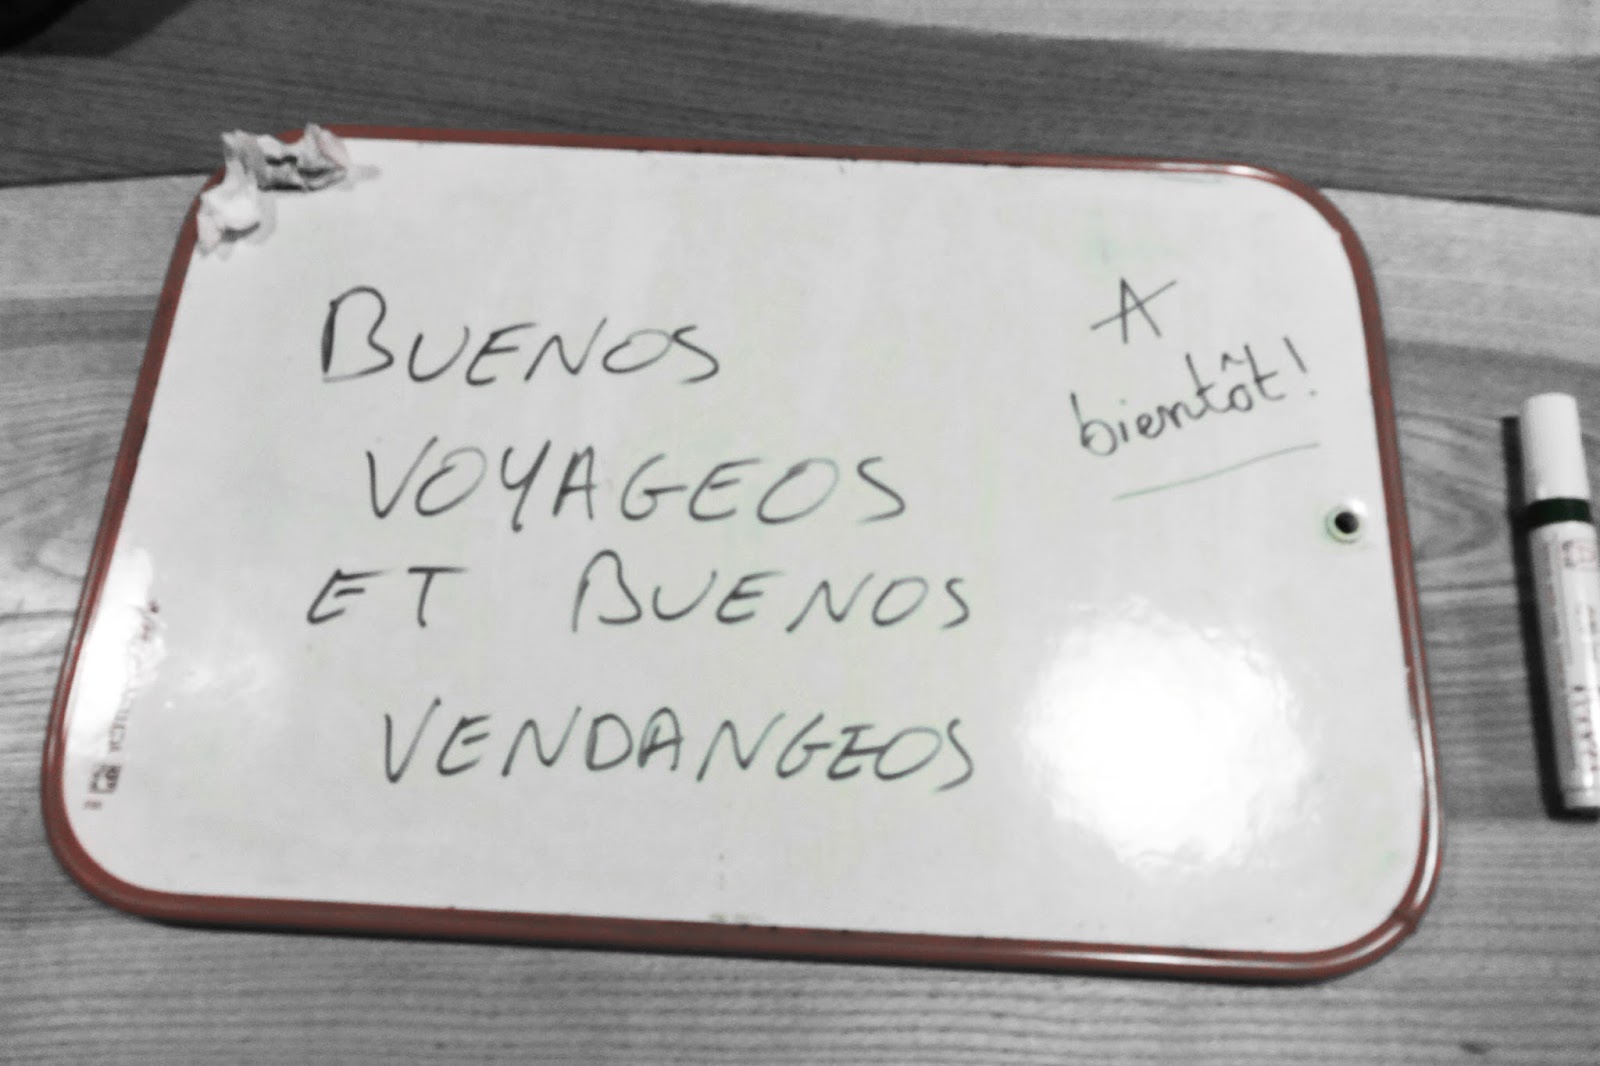 BUENOS
VOYAGEOS
ET BUENOS
VENDANGEOS
A
bientôt!